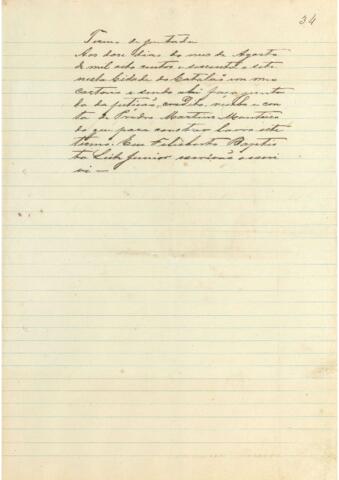 34
Termo de juntada
Aos dose dias do mes de Agosto
de mil oito centos e sessenta e sete
nesta Cidade do Catalão em meu
cartorio e sendo ahi faço junta
da da petição, e con
ta de Pedro Martins Monteiro
do que para constar lavro este
termo. Eu Filisberto Baptis
ta Leite Junior escrivão o escre
vi —